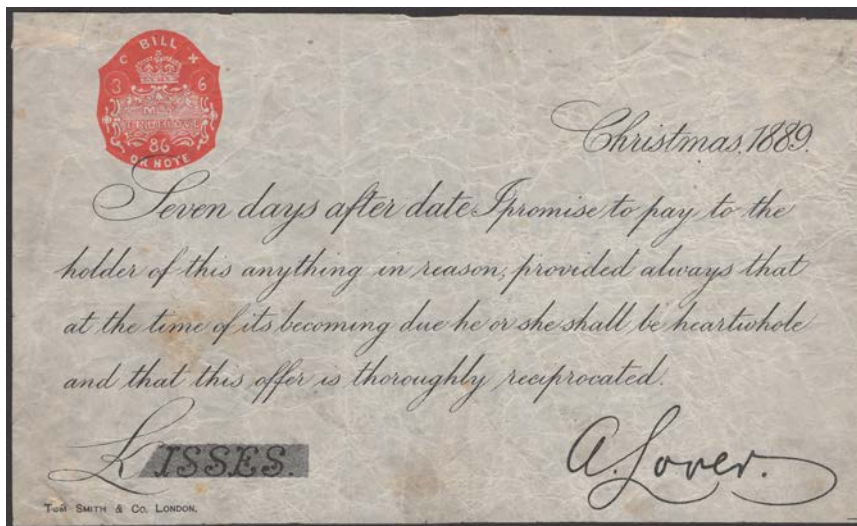 C BILL X
3 6
86
OR NOTE
Christmas, 1889.
Seven days after date I promise to pay to the
holder of this anything in reason, provided always that
at the time of its becoming due he or she shall be heartwhole
and that this offer is thoroughly reciprocated.
KISSES.
A. Lover.
TOM SMITH & CO. LONDON.